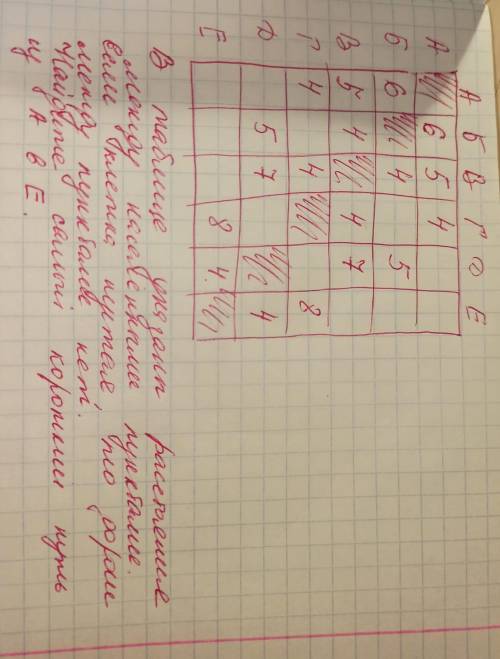 А Б В Г D Е
А 6 5 4
Б 6 4 5
В 5 4 4 7
Г 4 4 8
D 5 7 4
Е 8 4
В таблице указаны расстояние
между населёнными пунктами.
Если клетка пустая то дороги
между пунктами нет.
Найдите самый короткий путь
из А в Е.